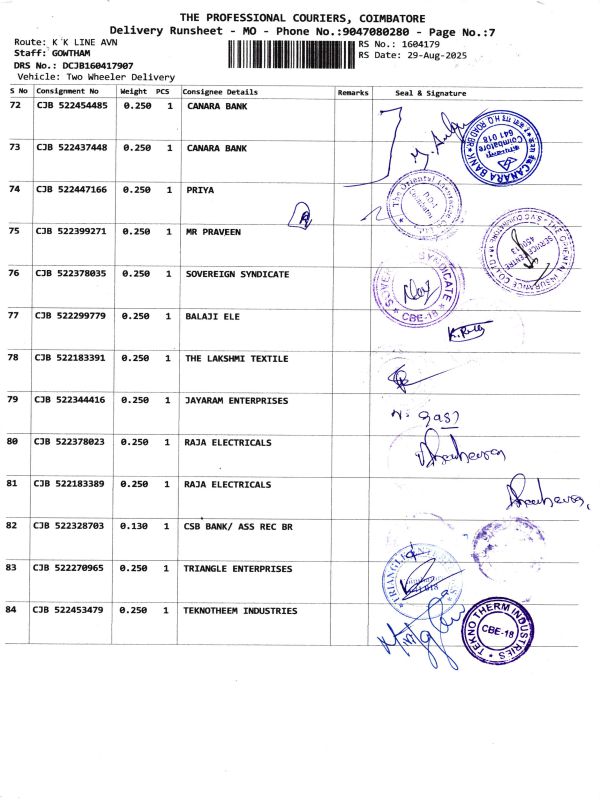 THE PROFESSIONAL COURIERS, COIMBATORE
Delivery Runsheet - MO - Phone No.:9047080280 - Page No.:7
Route: K K LINE AVN
RS No.: 1604179
Staff: GOWTHAM
RS Date: 29-Aug-2025
DRS No.: DCJB160417907
Vehicle: Two Wheeler Delivery
S No Consignment No Weight PCS Consignee Details Remarks Seal & Signature
72 CJB 522454485 0.250 1 CANARA BANK
73 CJB 522437448 0.250 1 CANARA BANK
CANARA BANK
Coimbatore
641 018
74 CJB 522447166 0.250 1 PRIYA
The Oriental
75 CJB 522399271 0.250 1 MR PRAVEEN
THE ORIENTAL INSURANCE CO LTD
SERVICE CENTRE
76 CJB 522378035 0.250 1 SOVEREIGN SYNDICATE
SYNDICATE
CBE-18
77 CJB 522299779 0.250 1 BALAJI ELE
78 CJB 522183391 0.250 1 THE LAKSHMI TEXTILE
79 CJB 522344416 0.250 1 JAYARAM ENTERPRISES
80 CJB 522378023 0.250 1 RAJA ELECTRICALS
81 CJB 522183389 0.250 1 RAJA ELECTRICALS
82 CJB 522328703 0.130 1 CSB BANK/ ASS REC BR
83 CJB 522270965 0.250 1 TRIANGLE ENTERPRISES
TRIANGLE
84 CJB 522453479 0.250 1 TEKNOTHEEM INDUSTRIES
TEKNO THERM INDUSTRIES
CBE-18